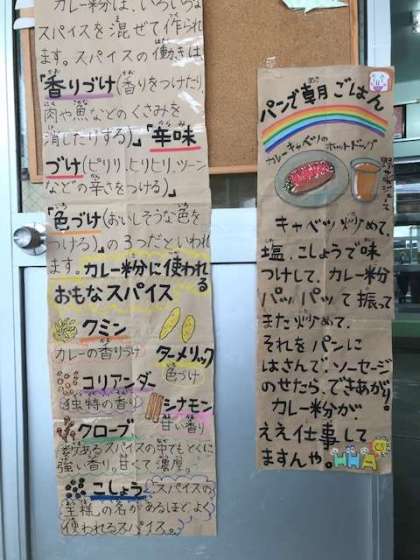 カレー粉は、いろいろな
スパイスを混ぜて作られ
ます。スパイスの働きは
「香りづけ(香りをつけたり、
肉や魚などのくさみを
消したりする)」「辛味
づけ(ピリリ、ヒリヒリ、ツーン
などの辛さをつける)」
「色づけ(おいしそうな色を
つける)」の3つだといわれ
ます。カレー粉に使われる
おもなスパイス
クミン
カレーの香りづけ
ターメリック
色づけ
コリアンダー
独特の香り
シナモン
甘い香り
クローブ
数あるスパイスの中でもとくに
強い香り。甘くて濃厚。
こしょう
スパイスの
王様の名があるほどよく
使われるスパイス。
パンで朝ごはん
カレーキャベツの
ホットドッグ
キャベツ炒めて、
塩、こしょうで味
つけして、カレー粉
パッパッて振って
また炒めて、
それをパンに
はさんで、ソーセージ
のせたら、できあがり。
カレー粉が
ええ仕事して
ますんや。